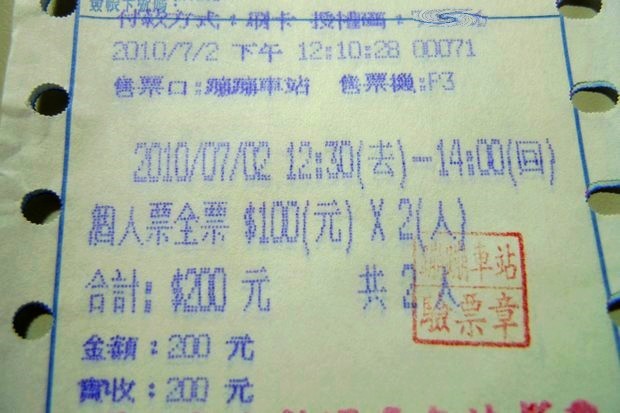 付款方式:刷卡 授權碼:
2010/7/2 下午 12:10:28 00071
售票口:蹦蹦車站 售票機:P3
2010/07/02 12:30(去)-14:00(回)
個人票全票 $100(元) X 2(人)
合計: $200 元 共 2 人
蹦蹦車站
驗票章
金額:200 元
實收:200 元